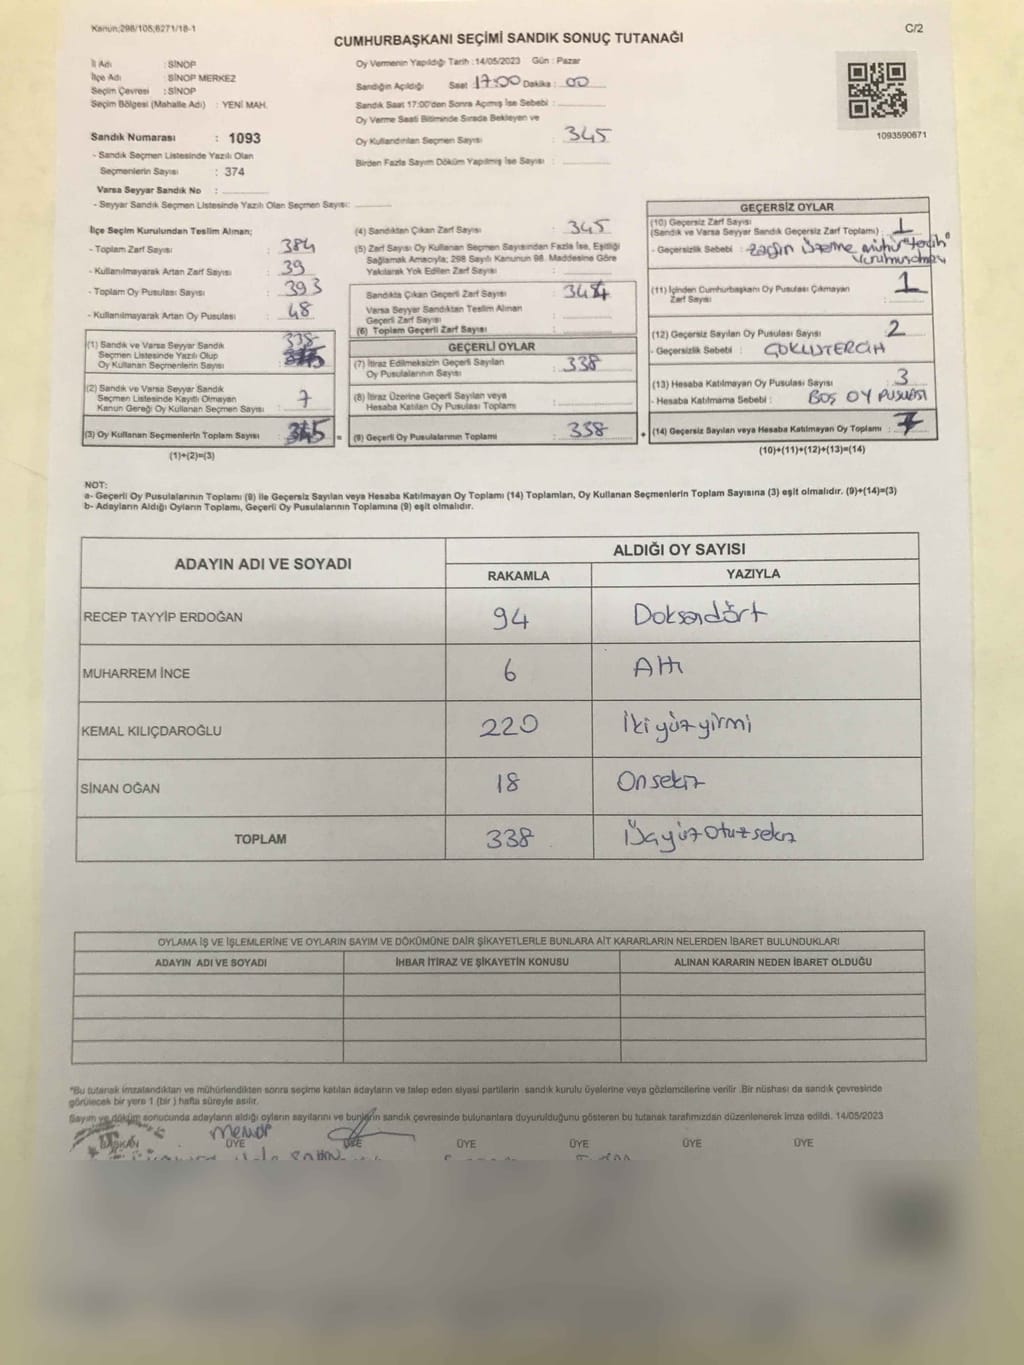 Kanun:298/105;6271/18-1
C/2
CUMHURBAŞKANI SEÇİMİ SANDIK SONUÇ TUTANAĞI
İl Adı : SİNOP
İlçe Adı : SİNOP MERKEZ
Seçim Çevresi : SİNOP
Seçim Bölgesi (Mahalle Adı) : YENİ MAH.
Sandık Numarası : 1093
- Sandık Seçmen Listesinde Yazılı Olan
Seçmenlerin Sayısı : 374
Varsa Seyyar Sandık No :
- Seyyar Sandık Seçmen Listesinde Yazılı Olan Seçmen Sayısı:
Oy Vermenin Yapıldığı Tarih : 14/05/2023 Gün : Pazar
Sandığın Açıldığı Saat 17:00 Dakika : 00
Sandık Saat 17:00'den Sonra Açılmış İse Sebebi :
Oy Verme Saati Bitiminde Sırada Bekleyen ve
Oy Kullandırılan Seçmen Sayısı : 345
Birden Fazla Sayım Döküm Yapılmış İse Sayısı :
1093590671
İlçe Seçim Kurulundan Teslim Alınan;
- Toplam Zarf Sayısı : 384
- Kullanılmayarak Artan Zarf Sayısı : 39
- Toplam Oy Pusulası Sayısı : 393
- Kullanılmayarak Artan Oy Pusulası : 48
(1) Sandık ve Varsa Seyyar Sandık
Seçmen Listesinde Yazılı Olup
Oy Kullanan Seçmenlerin Sayısı : 338
(2) Sandık ve Varsa Seyyar Sandık
Seçmen Listesinde Kayıtlı Olmayan
Kanun Gereği Oy Kullanan Seçmen Sayısı : 7
(3) Oy Kullanan Seçmenlerin Toplam Sayısı : 345 =
(1)+(2)=(3)
(4) Sandıktan Çıkan Zarf Sayısı : 345
(5) Zarf Sayısı Oy Kullanan Seçmen Sayısından Fazla İse, Eşitliği
Sağlamak Amacıyla; 298 Sayılı Kanunun 98. Maddesine Göre
Yakılarak Yok Edilen Zarf Sayısı :
Sandıkta Çıkan Geçerli Zarf Sayısı : 344
Varsa Seyyar Sandıktan Teslim Alınan
Geçerli Zarf Sayısı :
(6) Toplam Geçerli Zarf Sayısı :
GEÇERLİ OYLAR
(7) İtiraz Edilmeksizin Geçerli Sayılan
Oy Pusulalarının Sayısı : 338
(8) İtiraz Üzerine Geçerli Sayılan veya
Hesaba Katılan Oy Pusulası Toplamı :
(9) Geçerli Oy Pusulalarının Toplamı : 338 +
GEÇERSİZ OYLAR
(10) Geçersiz Zarf Sayısı
(Sandık ve Varsa Seyyar Sandık Geçersiz Zarf Toplamı) : 1
- Geçersizlik Sebebi : zarfın üzerine mühür "tercih"
vurulmuştur
(11) İçinden Cumhurbaşkanı Oy Pusulası Çıkmayan
Zarf Sayısı : 1
(12) Geçersiz Sayılan Oy Pusulası Sayısı : 2
- Geçersizlik Sebebi : ÇOKLUTERCİH
(13) Hesaba Katılmayan Oy Pusulası Sayısı : 3
- Hesaba Katılmama Sebebi : BOŞ OY PUSULASI
(14) Geçersiz Sayılan veya Hesaba Katılmayan Oy Toplamı : 7
(10)+(11)+(12)+(13)=(14)
NOT:
a- Geçerli Oy Pusulalarının Toplamı (9) ile Geçersiz Sayılan veya Hesaba Katılmayan Oy Toplamı (14) Toplamları, Oy Kullanan Seçmenlerin Toplam Sayısına (3) eşit olmalıdır. (9)+(14)=(3)
b- Adayların Aldığı Oyların Toplamı, Geçerli Oy Pusulalarının Toplamına (9) eşit olmalıdır.
ADAYIN ADI VE SOYADI
ALDIĞI OY SAYISI
RAKAMLA YAZIYLA
RECEP TAYYİP ERDOĞAN 94 Doksandört
MUHARREM İNCE 6 Altı
KEMAL KILIÇDAROĞLU 220 İkiyüzyirmi
SİNAN OĞAN 18 Onsekiz
TOPLAM 338 Üçyüzotuzsekiz
OYLAMA İŞ VE İŞLEMLERİNE VE OYLARIN SAYIM VE DÖKÜMÜNE DAİR ŞİKAYETLERLE BUNLARA AİT KARARLARIN NELERDEN İBARET BULUNDUKLARI
ADAYIN ADI VE SOYADI İHBAR İTİRAZ VE ŞİKAYETİN KONUSU ALINAN KARARIN NEDEN İBARET OLDUĞU
*Bu tutanak imzalandıktan ve mühürlendikten sonra seçime katılan adayların ve talep eden siyasi partilerin sandık kurulu üyelerine veya gözlemcilerine verilir. Bir nüshası da sandık çevresinde
görülecek bir yere 1 (bir) hafta süreyle asılır.
Sayım ve döküm sonucunda adayların aldığı oyların sayılarını ve bunların sandık çevresinde bulunanlara duyurulduğunu gösteren bu tutanak tarafımızdan düzenlenerek imza edildi. 14/05/2023
memur
BAŞKAN ÜYE ÜYE ÜYE ÜYE ÜYE ÜYE